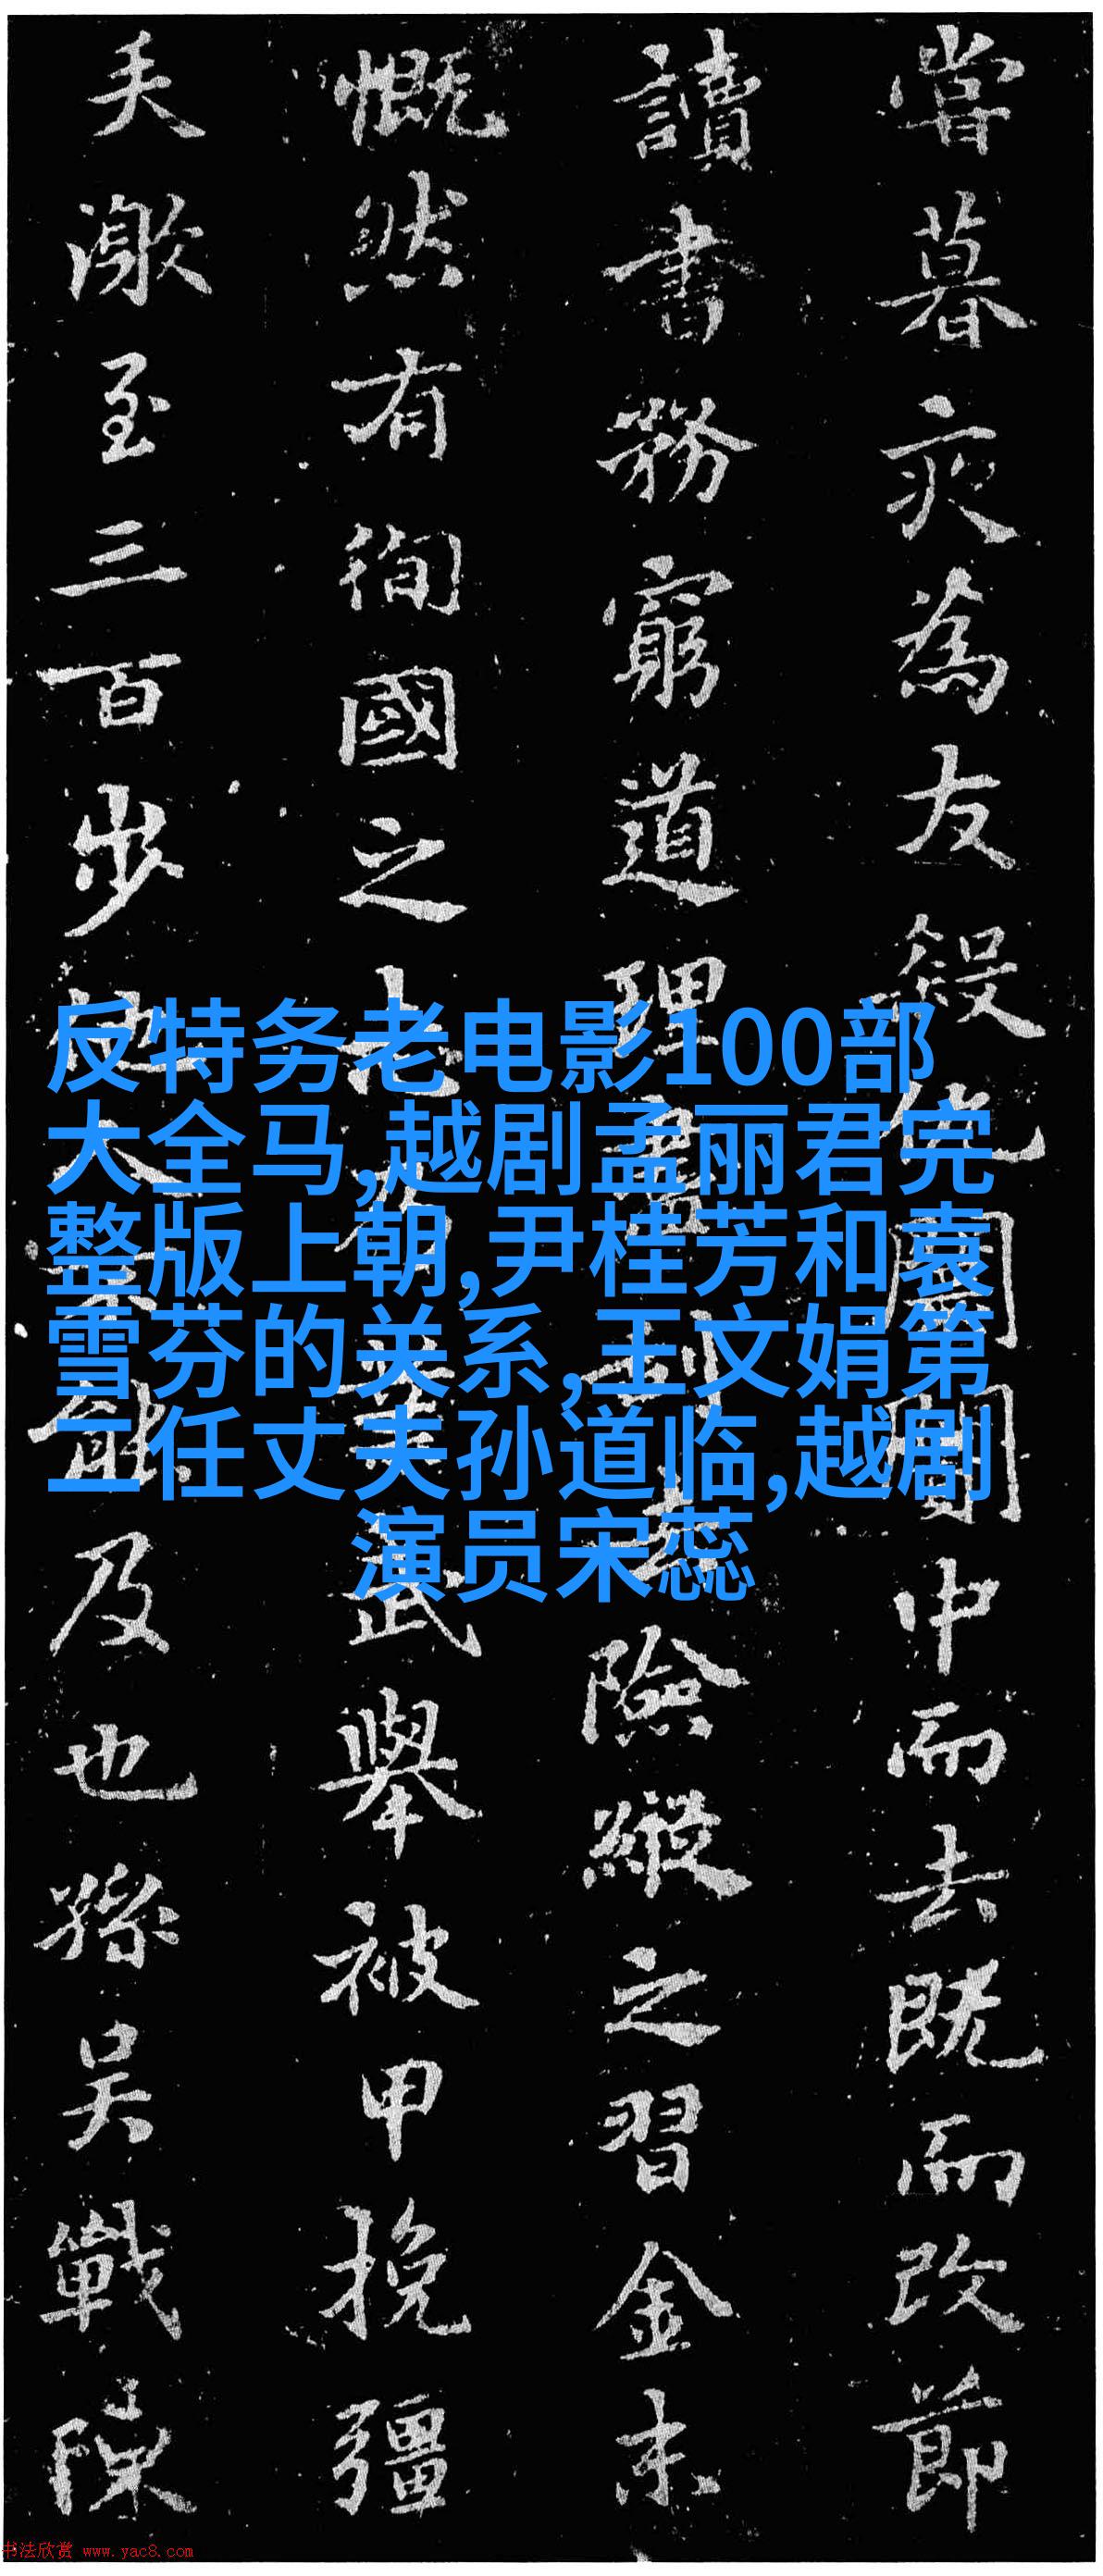 嘗暮灾為友殺仇國開中而去既而改節
讀書務窮道理險縱之習金末
慨然有徇國之志武舉被甲挽彊
夫激至三百步及也孫吴戰陳
反特务老电影100部
大全马,越剧孟丽君完
整版上朝,尹桂芳和袁
雪芬的关系,王文娟第
二任丈夫孙道临,越剧
演员宋蕊
书法欣赏 www.yac8.com